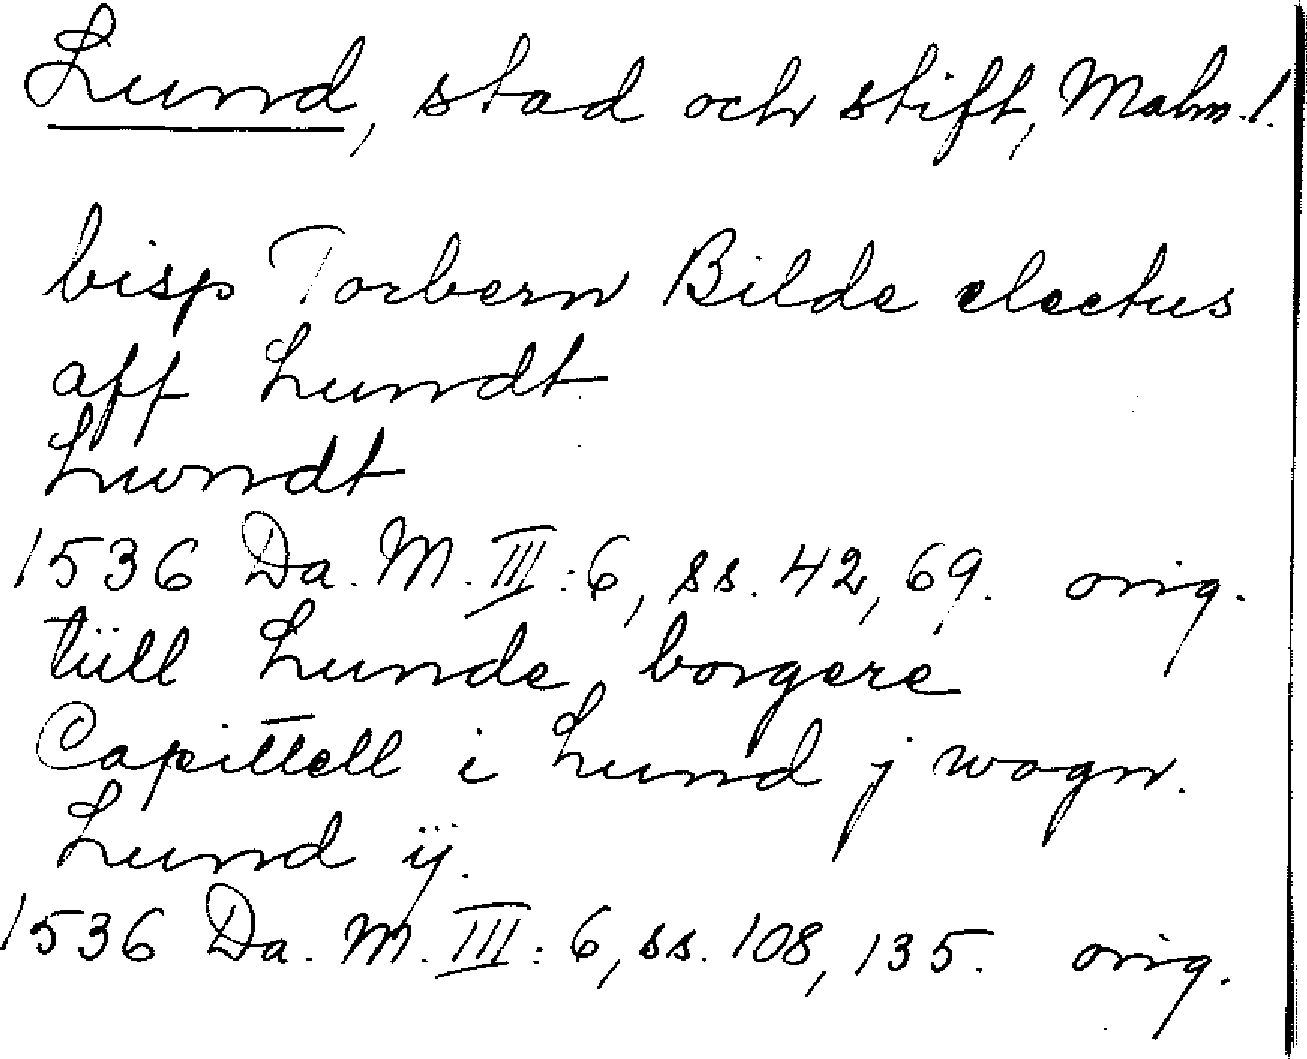 Lund, stad och stift, Malm. l.
bisp Torbern Bilde electus
aff Lundt
Lwndt
1536 Da. M. III:6, ss. 42, 69. orig.
tüll Lunde, borgere
Capittell i Lund j wogn.
Lund ÿ.
1536 Da. M. III: 6, ss. 108, 135. orig.